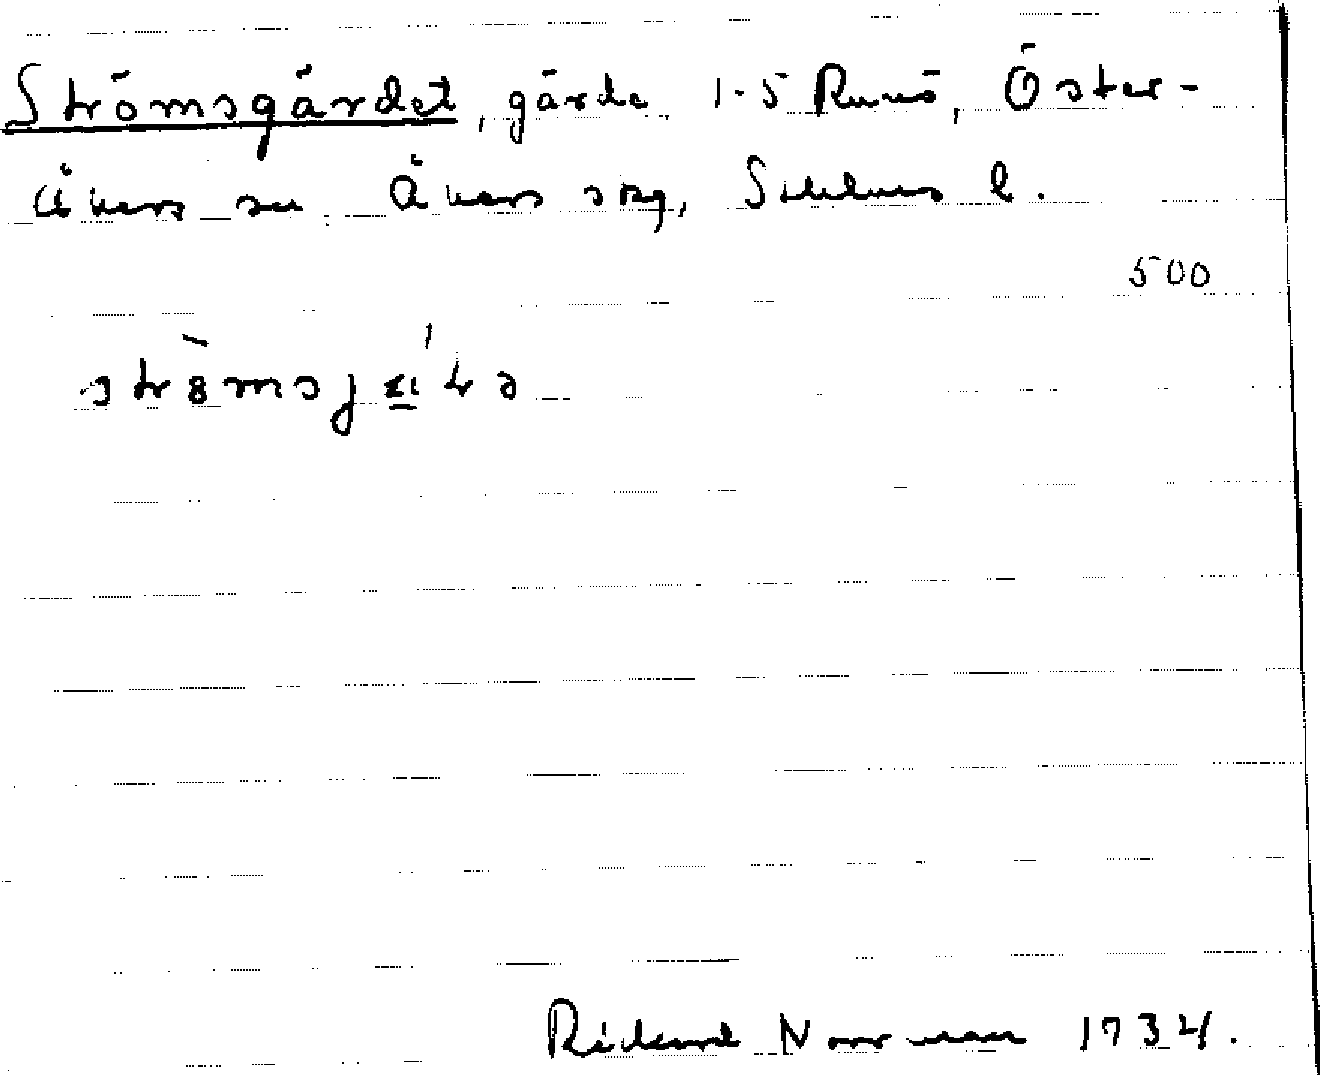 Strömsgärdet, gärde, 1-5 Runö, Öster-
Åkers sn. Åkers skg, Sthlms l.
500
Rickard Norrman 1934.